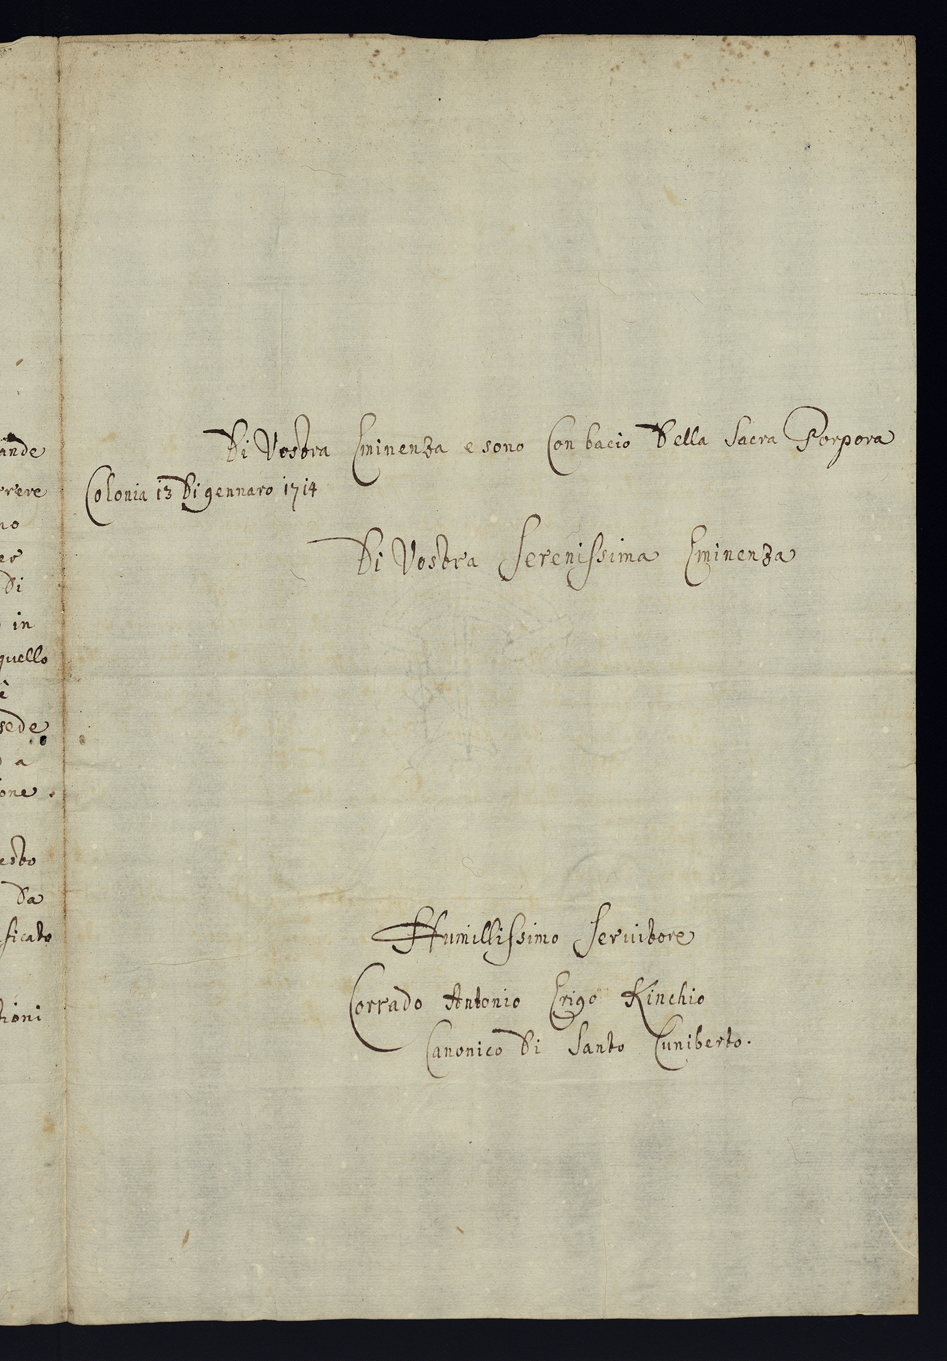 ande
rrere
no
er
Di
in
quello
è
sede
a
one.
esto
Da
ficato
tioni
Di Vostra Eminenza e sono Con bacio Della Sacra Porpora
Colonia 13 Di gennaro 1714
Di Vostra Serenissima Eminenza
Humillissimo Seruitore
Corrado Antonio Erigo Kinchio
Canonico Di Santo Cuniberto.